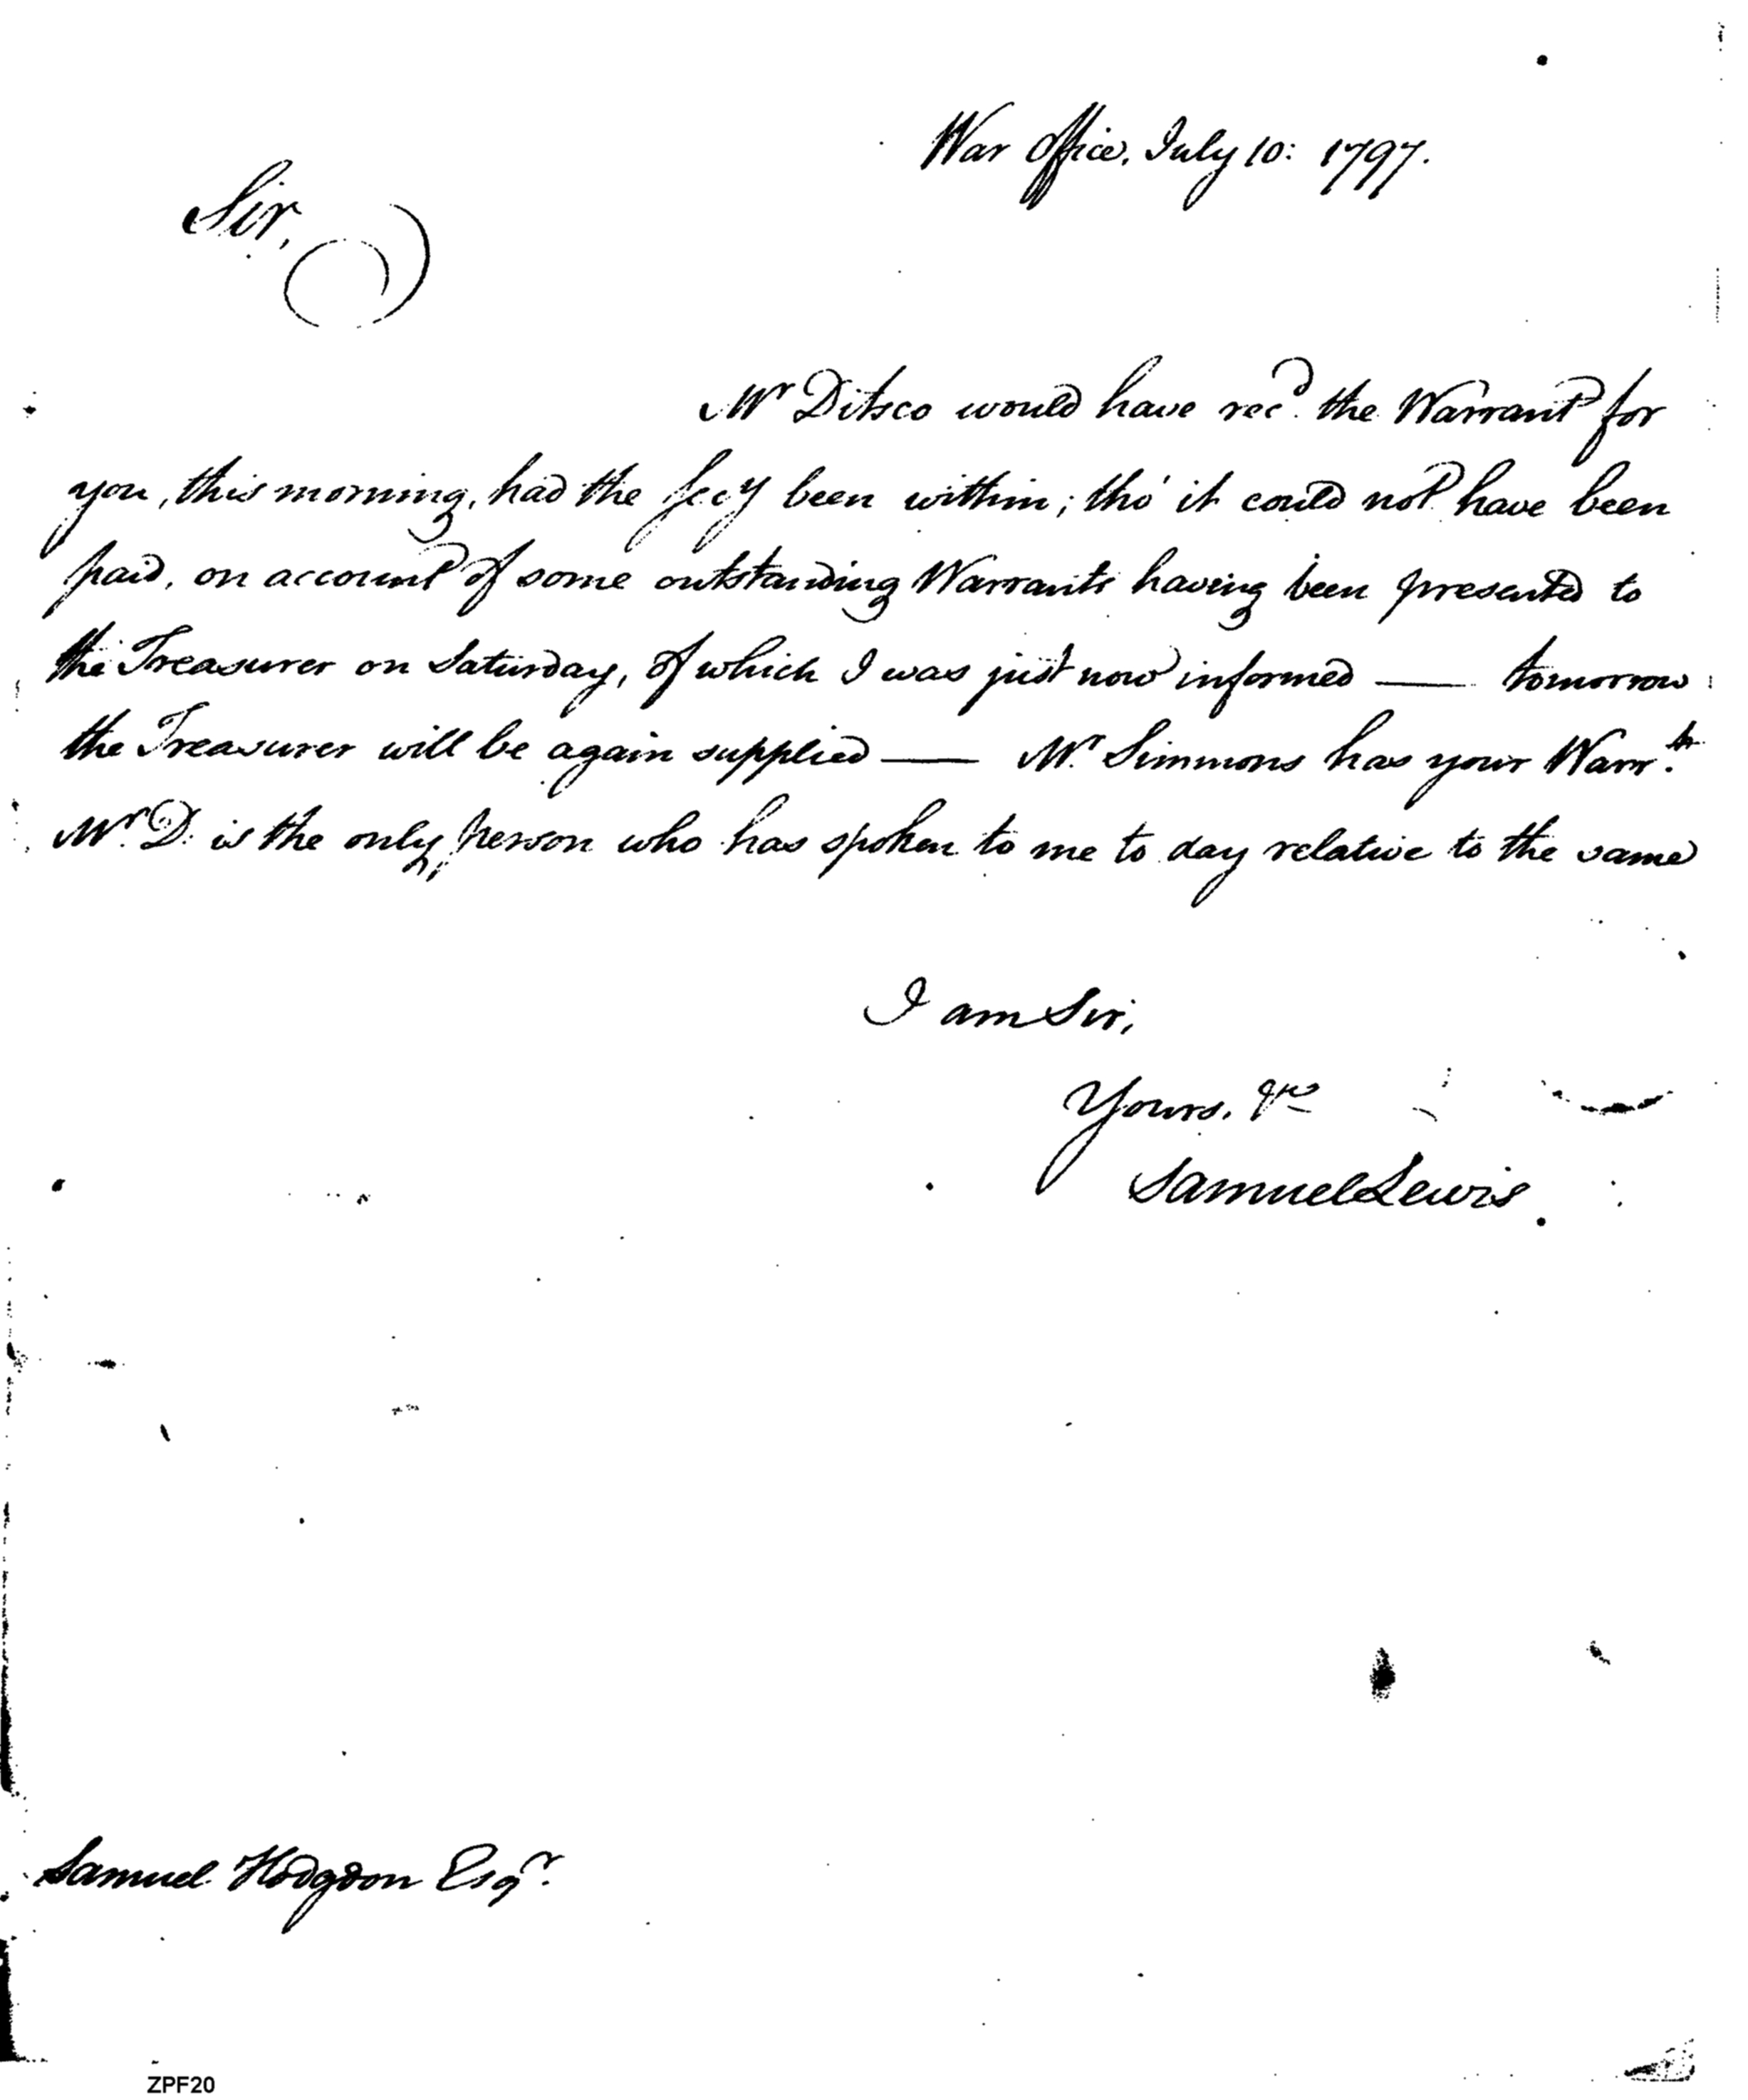 War Office, July 10: 1797.
Sir,
Mr Ditsco would have recd. the Warrant for
you, this morning, had the Secy been within; tho' it could not have been
paid, on account of some outstanding Warrants having been presented to
the Treasurer on Saturday, of which I was just now informed — tomorrow
the Treasurer will be again supplied — Mr. Simmons has your Warrts.
Mr. D. is the only person who has spoken to me to day relative to the same
I am Sir,
Yours, &c
Samuel Lewis.
Samuel Hodgdon Esqr.
ZPF20